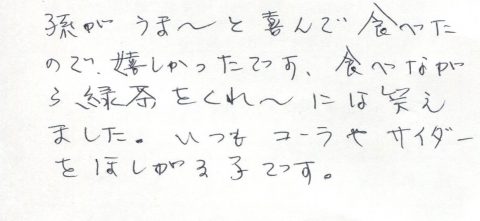 孫が うま〜と喜んで食べた
ので、嬉しかったです、食べなが
ら緑茶をくれ〜には笑え
ました。いつもコーラやサイダー
をほしがる子です。